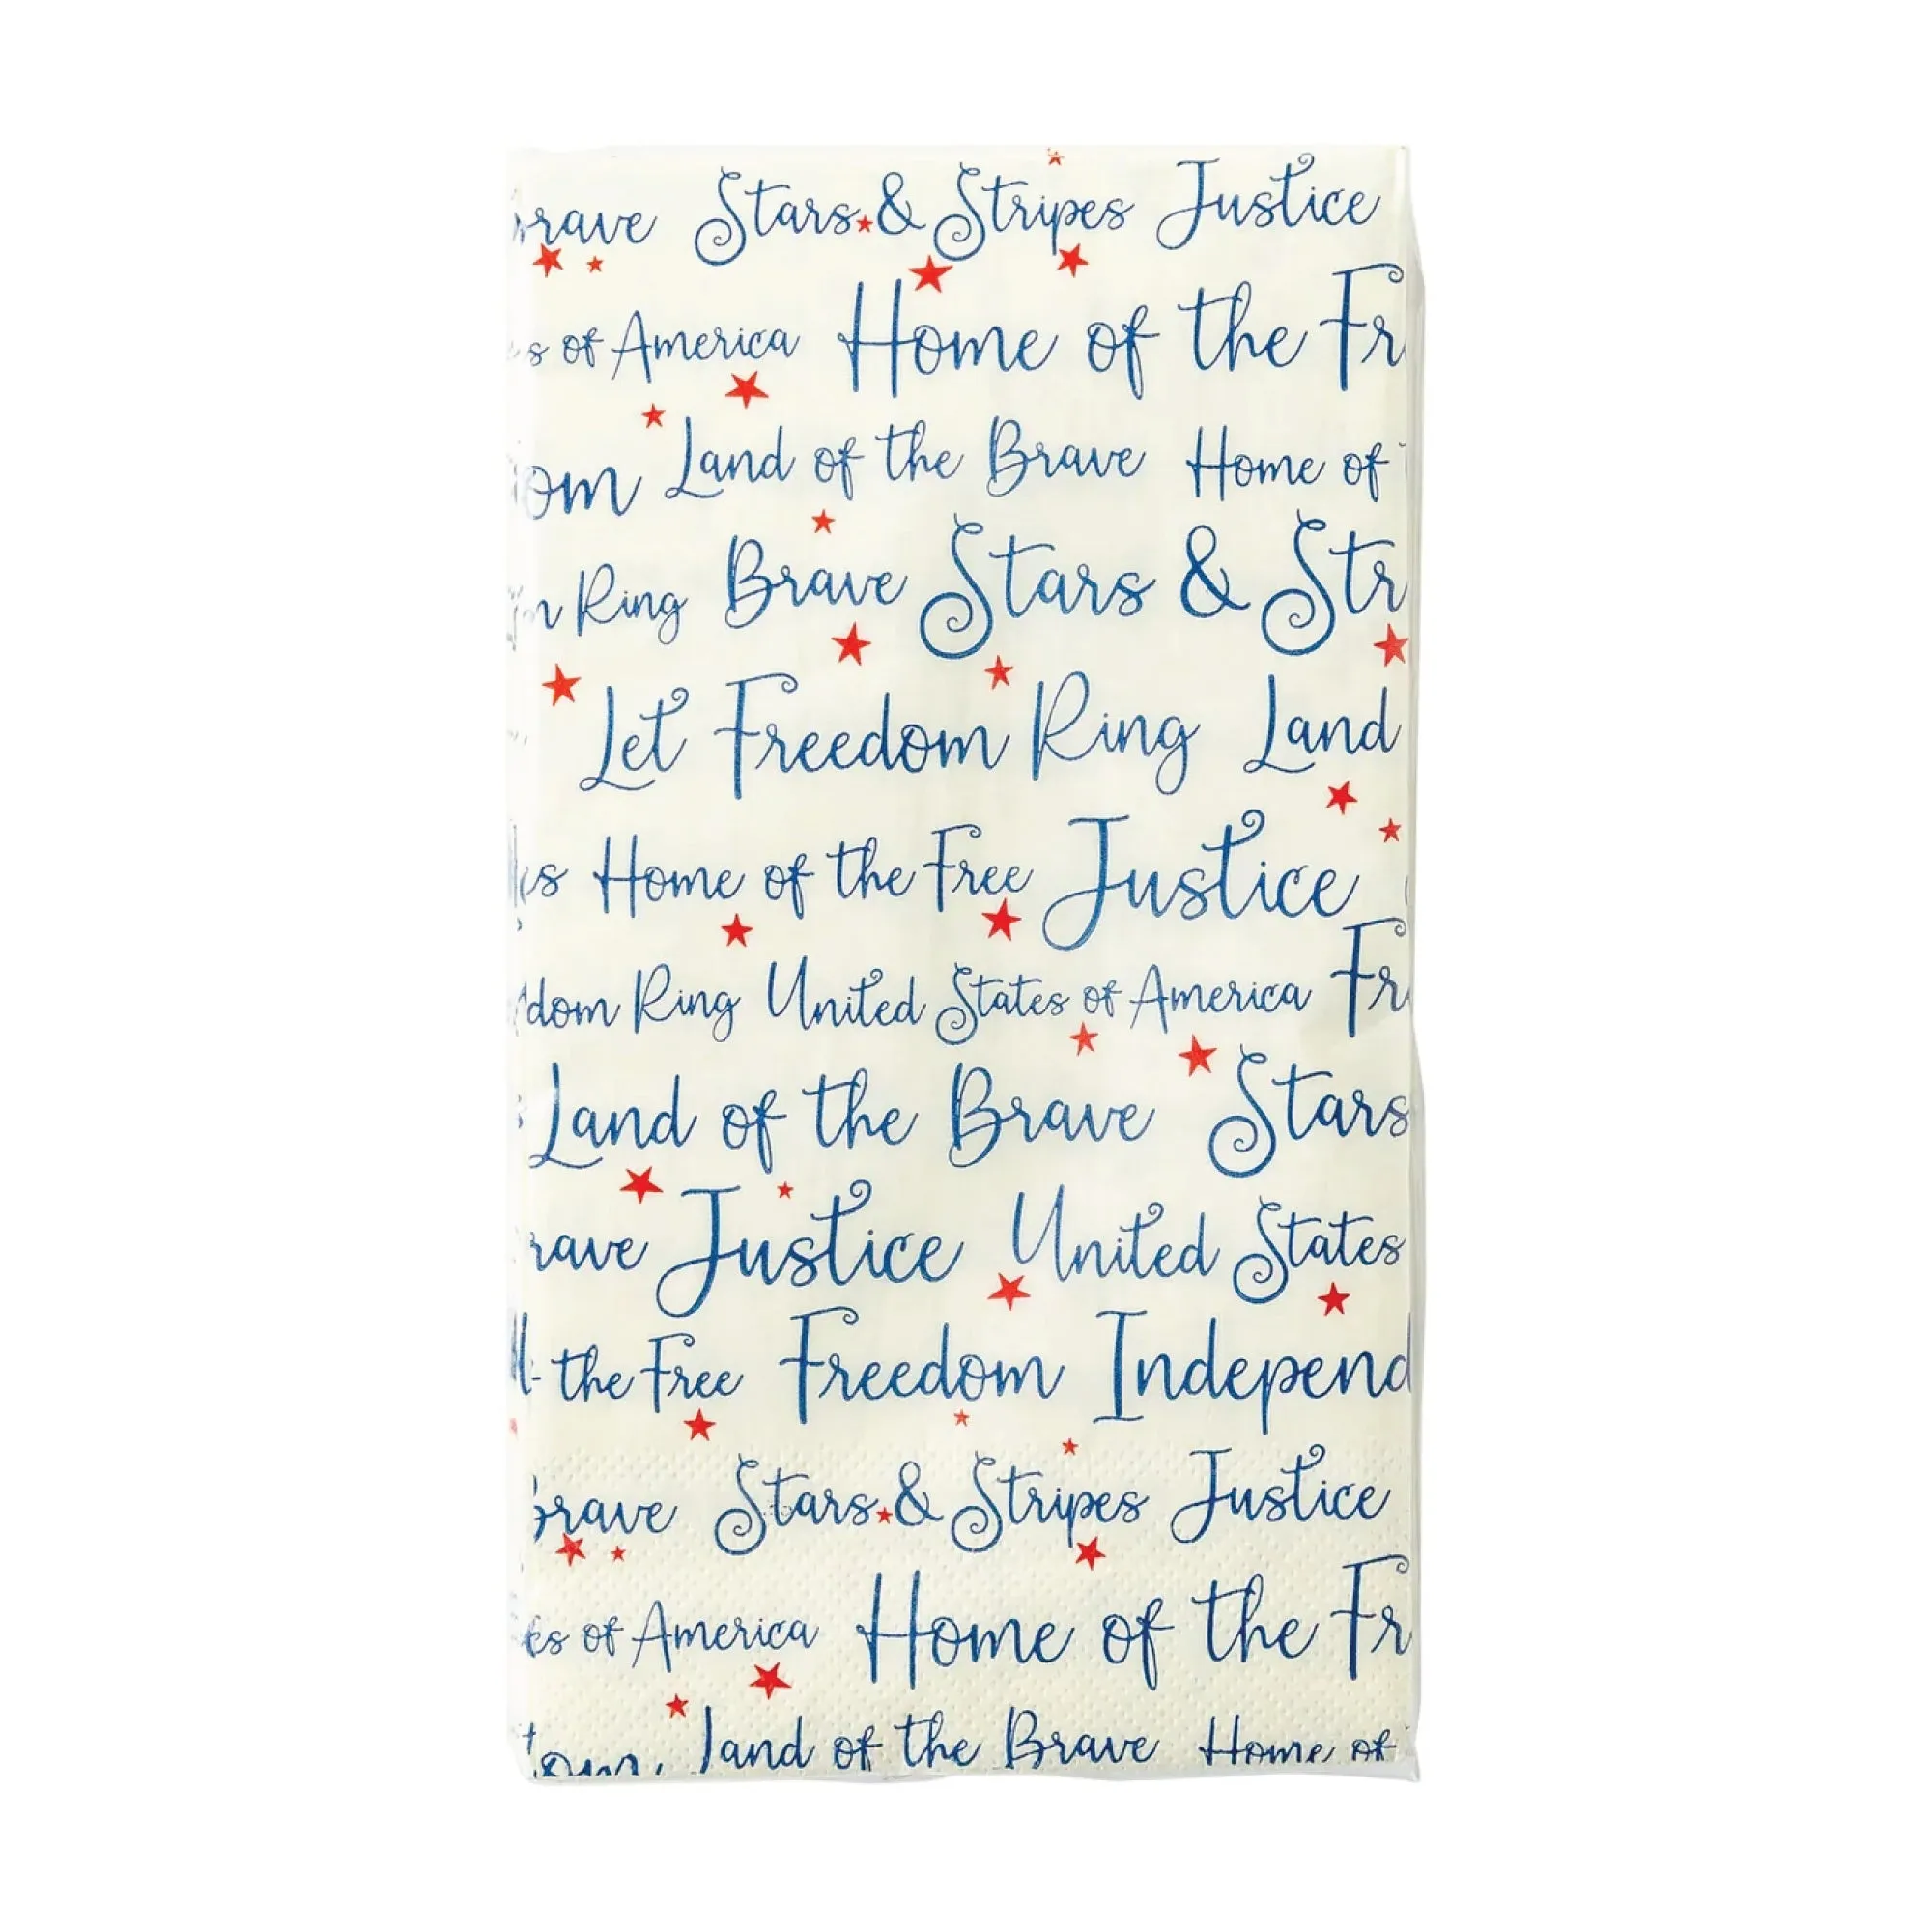 Stars & Stripes Justice
of America Home of the Fr
Land of the Brave Home of
Ring Brave Stars & Str
Let Freedom Ring Land
Home of the Free Justice
dom Ring United States of America Fr
Land of the Brave Stars
rave Justice United States
the Free Freedom Independ
rave Stars & Stripes Justice
es of America Home of the Fr
Land of the Brave Home of